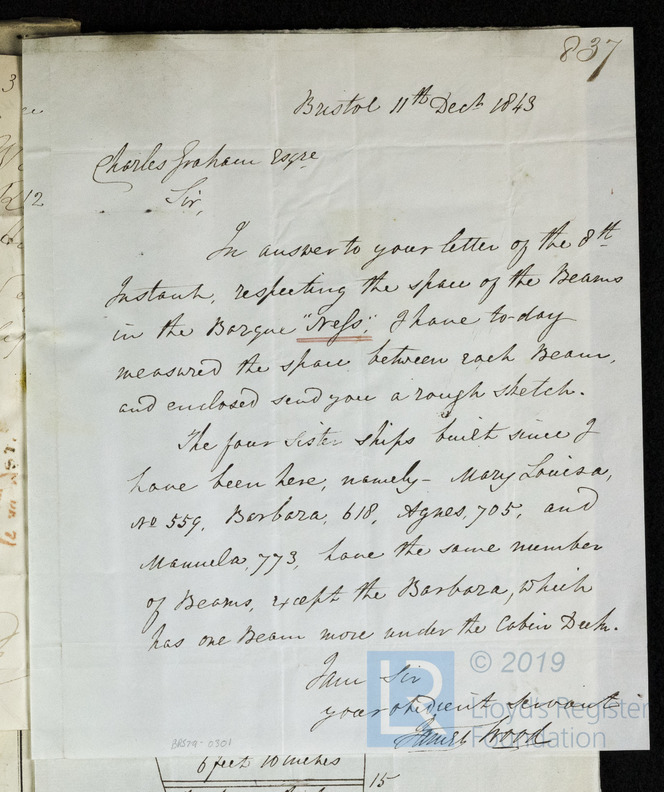 837
Bristol 11th Decr. 1843
Charles Graham Esqre
Sir,
In answer to your letter of the 8th
Instant, respecting the space of the Beams
in the Barque "Ness", I have to-day
measured the space between each Beam,
and enclosed send you a rough sketch.
The four Sister ships built since I
have been here, namely - Mary Louisa,
No 559, Barbara, 618, Agnes, 705, and
Manuela, 773, have the same number
of Beams, except the Barbara, which
has one Beam more under the Cabin Deck.
I am Sir
your obedient servant
James Wood
LR
© 2019
Lloyd's Register
Foundation
BRS79-0301
6 feet 10 inches
15
3
12